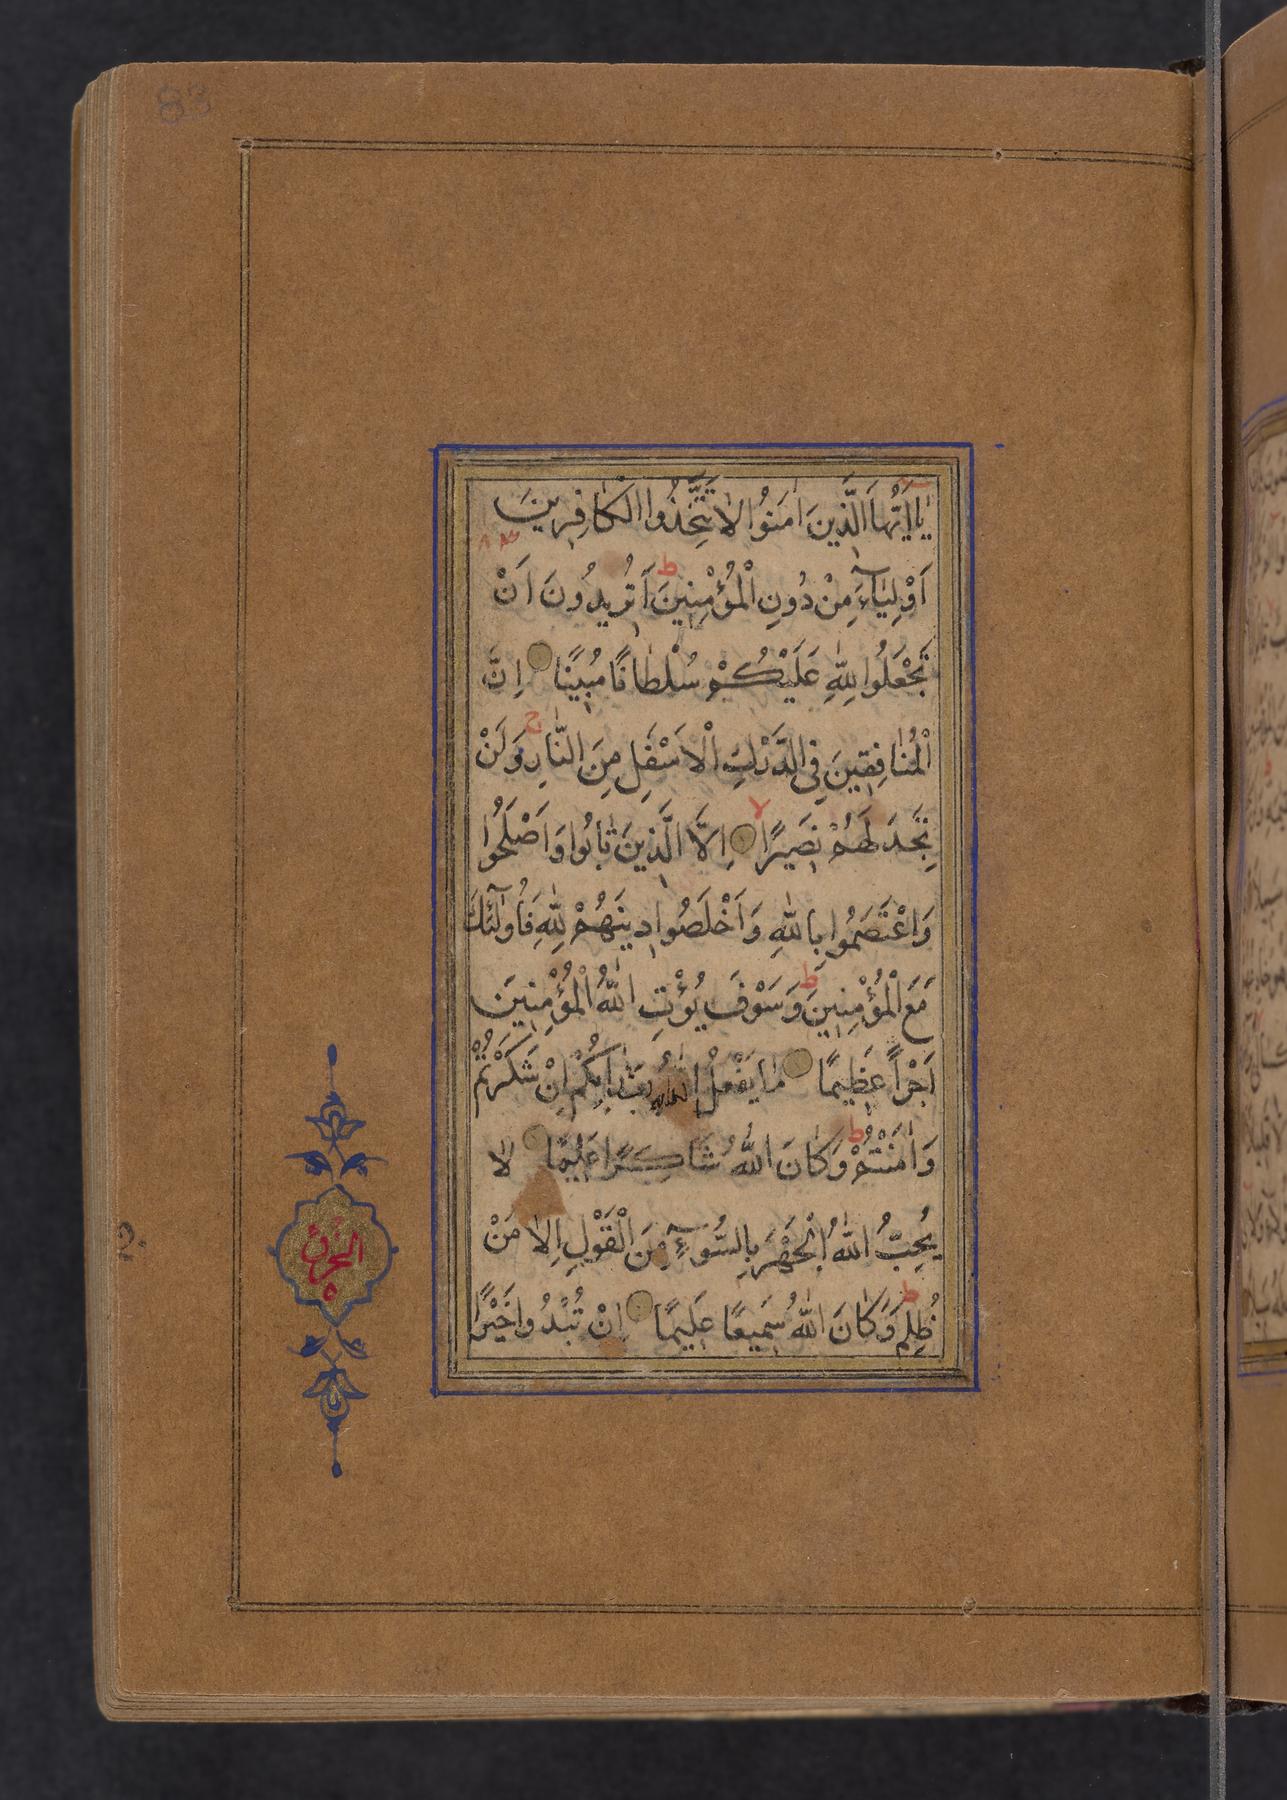 83
يٰا اَيُّهَا الَّذينَ اٰمَنُوا لاٰ تَتَّخِذُوا الْكٰافِرينَ
اَوْلِيٰآءَ مِنْ دُونِ الْمُؤْمِنينَ ط اَتُريدُونَ اَنْ
تَجْعَلُوا لِلّٰهِ عَلَيْكُمْ سُلْطٰانًا مُبينًا اِنَّ
الْمُنٰافِقينَ فِى الدَّرْكِ الْاَسْفَلِ مِنَ النّٰارِ ج وَلَنْ
تَجِدَ لَهُمْ نَصيرًا لا اِلَّا الَّذينَ تٰابُوا وَاَصْلَحُوا
وَاعْتَصَمُوا بِاللّٰهِ وَاَخْلَصُوا دينَهُمْ لِلّٰهِ فَاُولٰٓئِكَ
مَعَ الْمُؤْمِنينَ ط وَسَوْفَ يُؤْتِ اللّٰهُ الْمُؤْمِنينَ
اَجْرًا عَظيمًا مٰا يَفْعَلُ اللّٰهُ بِعَذٰابِكُمْ اِنْ شَكَرْتُمْ
وَاٰمَنْتُمْ ط وَكٰانَ اللّٰهُ شٰاكِرًا عَليمًا لاٰ
يُحِبُّ اللّٰهُ الْجَهْرَ بِالسُّوٓءِ مِنَ الْقَوْلِ اِلاّٰ مَنْ
ظُلِمَ ط وَكٰانَ اللّٰهُ سَميعًا عَليمًا اِنْ تُبْدُوا خَيْرًا